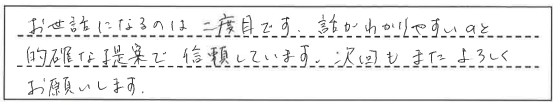 お世話になるのは二度目です。話がわかりやすいのと
的確な提案で信頼しています。次回もまたよろしく
お願いします。